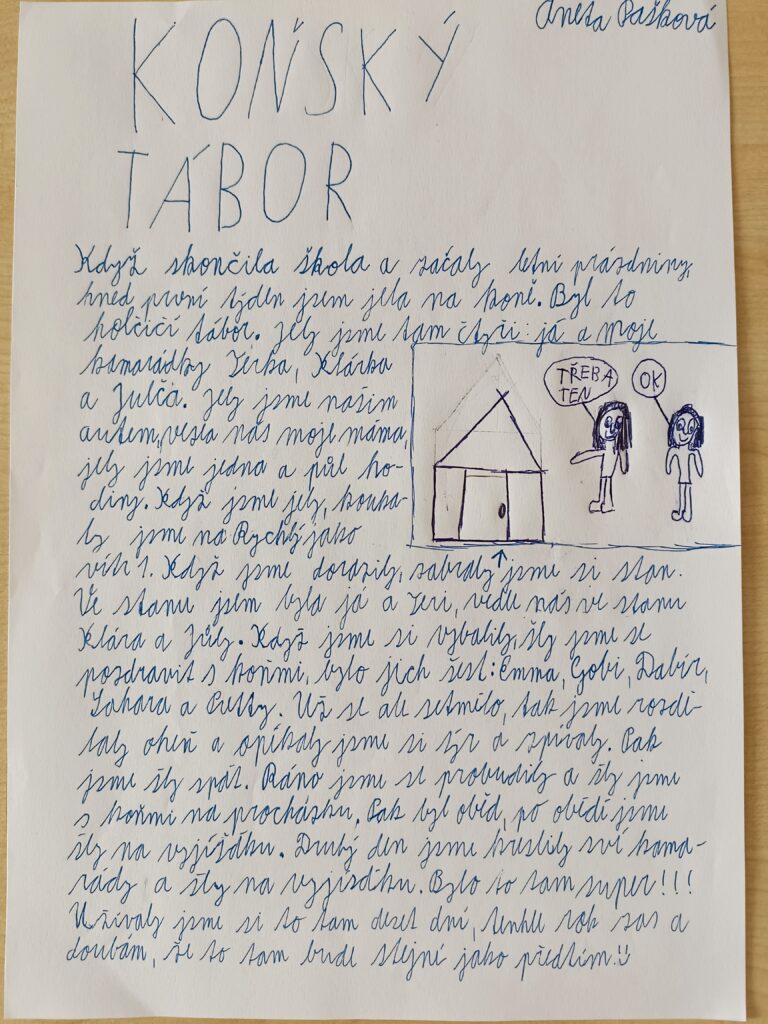 Aneta Pašková
KOŇSKÝ
TÁBOR
Když skončila škola a začaly letní prázdniny,
hned první týden jsem jela na koně. Byl to
holčičí tábor. Jely jsme tam čtyři: já a moje
kamarádky Terka, Klárka
a Julča. Jely jsme našim
autem, vezla nás moje máma,
jely jsme jedna a půl ho-
diny. Když jsme jely, kouka-
ly jsme na Rychlý jako
vítr 1. Když jsme dorazily, zabraly jsme si stan.
TŘEBA
TEN
OK
Ve stanu jsem byla já a Teri, vedle nás ve stanu
Klára a Júly. Když jsme si vybalily, šly jsme se
pozdravit s koňmi, bylo jich šest: Emma, Gobi, Dabir,
Sahara a Pretty. Už se ale setmělo, tak jsme rozdě-
laly oheň a opíkaly jsme si sýr a zpívaly. Pak
jsme šly spát. Ráno jsme se probudily a šly jsme
s koňmi na procházku. Pak byl oběd, po obědě jsme
šly na vyjížďku. Druhý den jsme kreslily své kama-
rády a šly na vyjížďku. Bylo to tam super!!!
Užívaly jsme si to tam deset dní, tenhle rok zas a
doufám, že to tam bude stejné jako předtím.